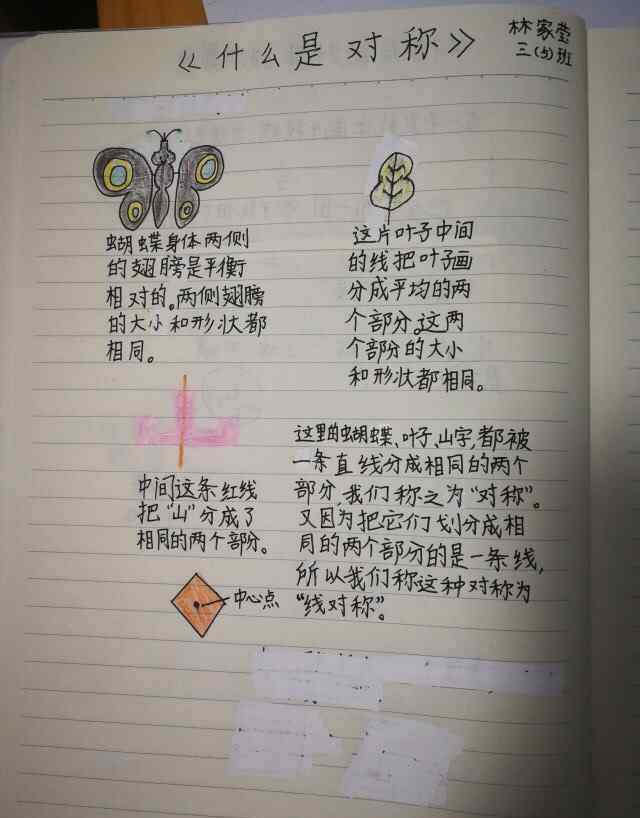 《什么是对称》
林家莹
三(5)班
蝴蝶身体两侧
的翅膀是平衡
相对的。两侧翅膀
的大小和形状都
相同。
这片叶子中间
的线把叶子画
分成平均的两
个部分。这两
个部分的大小
和形状都相同。
中间这条红线
把“山”分成了
相同的两个部分。
这里的蝴蝶、叶子、山字,都被
一条直线分成相同的两个
部分,我们称之为“对称”。
又因为把它们划分成相
同的两个部分的是一条线,
所以我们称这种对称为
“线对称”。
中心点